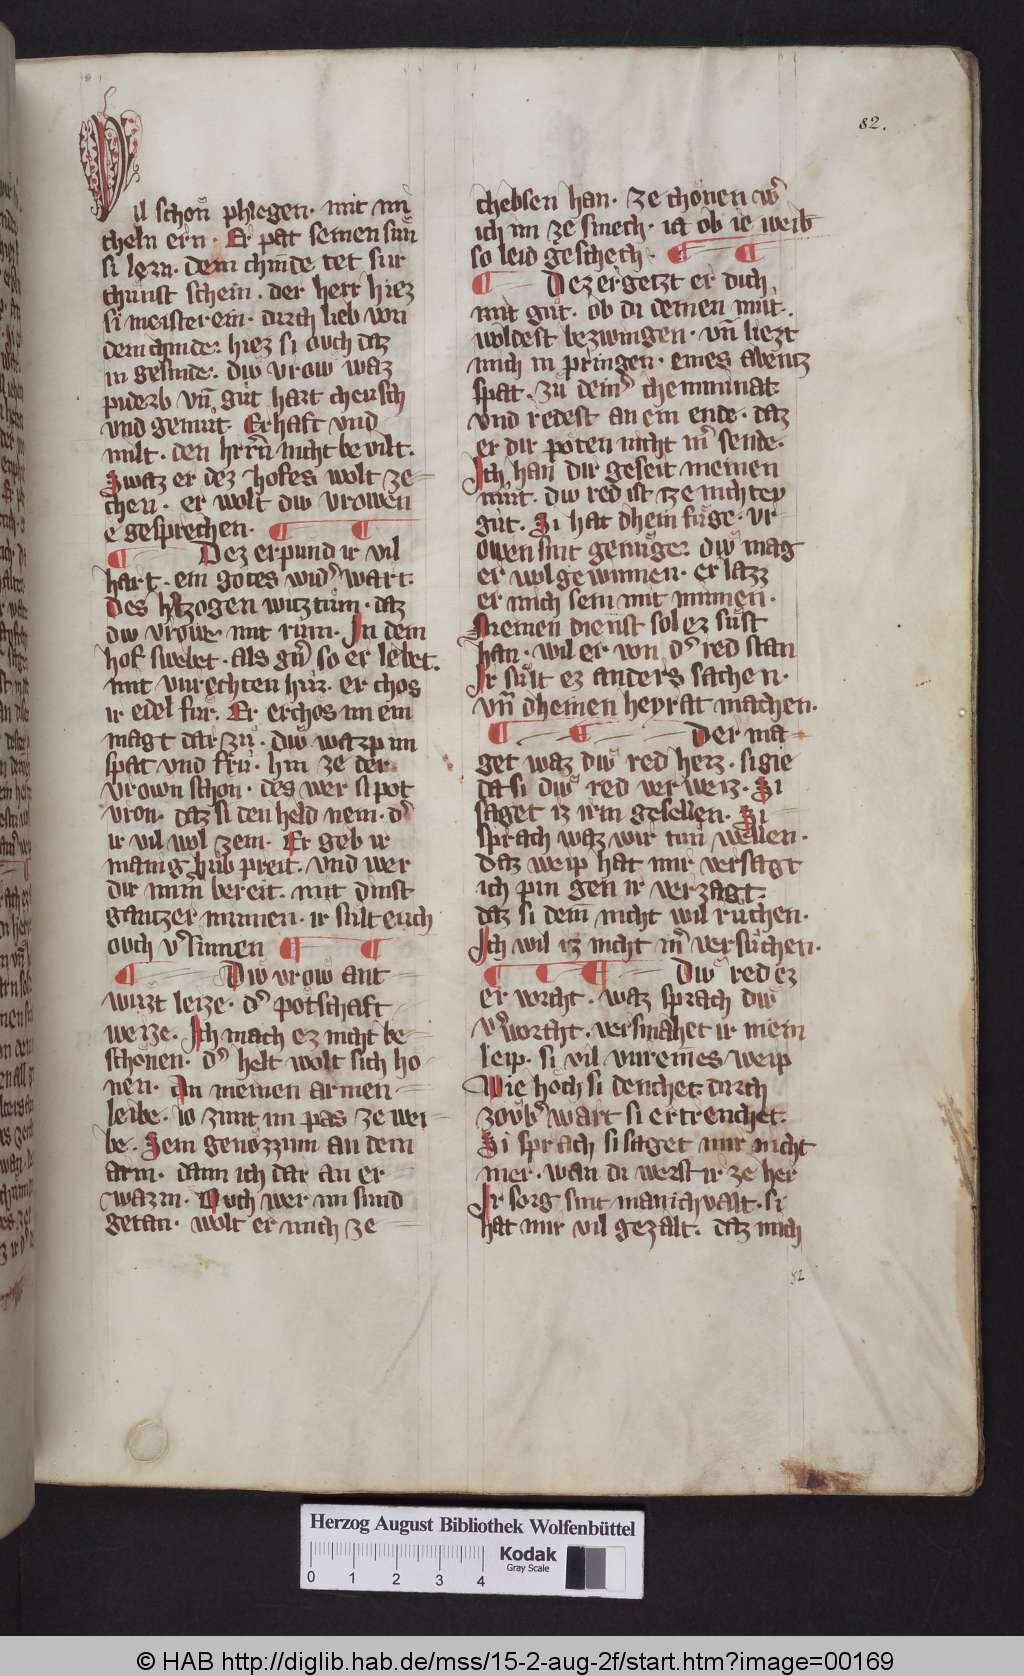 82.
Vil schon phlegen · mit mi
cheln ern · Er pat seinen sun
si lern · dem chinde tet sur
chunst schein · der herr hiez
si meisterein · durch lieb von
dem chinde · hiez si ouch daz
in gesinde · diw vrow waz
piderb vn̄ gut hart cheusch
vnd gemut · Erhaft vnd
milt · den hrrn̄ nicht bevilt ·
Swaz er dez hofes wolt ze
chen · er wolt diw vrowen
e gesprechen ·
Dez erpund ir vil
hart · ein gotes widͤ wart ·
Des hͤtzogen witztum · daz
diw vrowe mit rum · In dem
hof swebet · als gn̄ so er lebet ·
mit vnrechten hurͤ · er chos
ir edel fur · Er erchos im ein
magt dar zu · diw waz pim
spat vnd fru · hin ze der
vrown schon · des wer si pot
vron · daz si den held nem · dͤ
ir vil wol zem · Er geb ir
manig hub preit · vnd wer
dir nimͤ bereit · mit dinst
gantzer minnen · ir sult euch
ouch vͤsinnen
Diw vrow ant
wurt leize · dͤ potschaft
weize · Ich mach ez nicht be
schonen · dͤ helt wolt sich ho
nen · An meinen armen
leibe · io zimt im pas ze wei
be · Sein genozzinn an dem
arm · dann ich dar an er
warm · Ouch wer im sund
getan · wolt er mich ze
chebsen han · ze chonen wͤ
ich im ze smech · ia ob ie weib
so leid geschech ·
Dez ergetzt er dich
mit gut · ob du deinen mut ·
woldest bezwingen · vn̄ liezt
mich in pringen · eines abentz
spat · zu deinͤ chemmnat
vnd redest an ein ende · daz
er dir poten nicht mͤ sende ·
Ich han dir geseit meinen
mut · diw red ist tze nichtev
gut · Si hat dhein fuge · vr
owen sint genuge · diw mag
er wol gewinnen · er lazz
er mich sein mit minnen ·
Niemen dienst sol ez sust
han · wil er von dͤ red stan
Ir sult ez anders sachen ·
vn̄ dheinen heyrat machen ·
Der ma
get waz diw red herz · si gie
da si diw red verweiz · Si
saget iz irm gesellen · Si
sprach waz wir tun wellen ·
Daz weip hat mir versagt
ich pin gen ir verzagt ·
daz si dein nicht wil ruchen ·
Ich wil iz nicht mͤ versuchen ·
Diw red ez
er vorcht · waz sprach diw
vͤworcht · versmahet ir mein
leip · si vil vnreines weip
Wie hoch si denchet · durch
zoubͤ wart si ertrenchet ·
Si sprach si saget mir nicht
mer · wan du werst ir ze her
Ir sorg sint manichvalt · si
hat mir vil gezalt · daz mich
82
Herzog August Bibliothek Wolfenbüttel
0 1 2 3 4
Kodak
Gray Scale
© HAB http://diglib.hab.de/mss/15-2-aug-2f/start.htm?image=00169